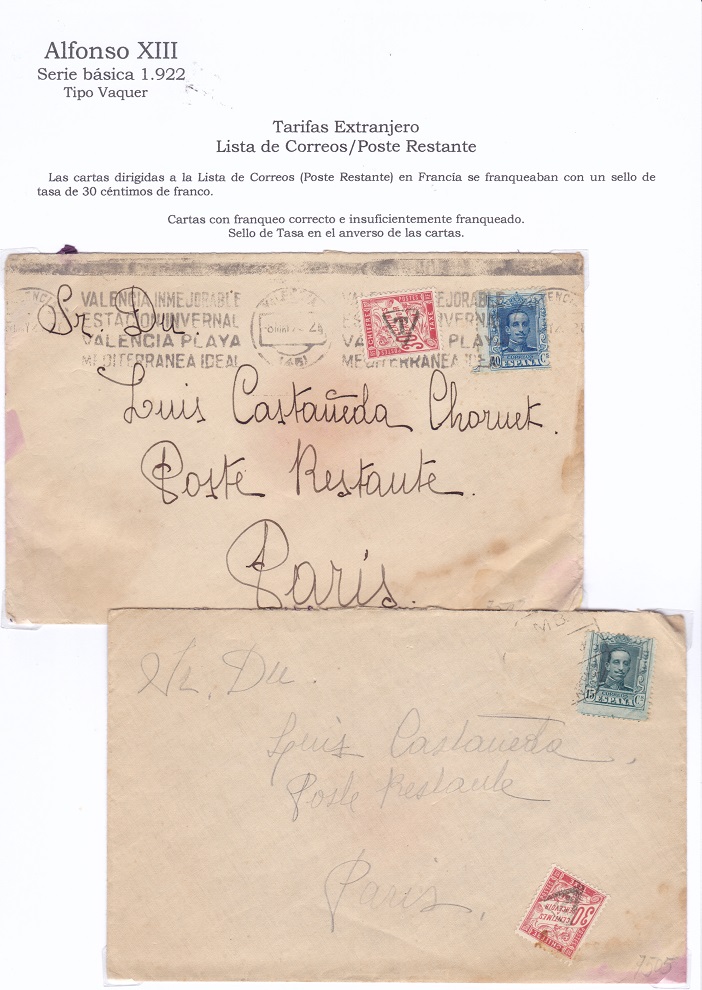 Alfonso XIII
Serie básica 1.922
Tipo Vaquer
Tarifas Extranjero
Lista de Correos/Poste Restante
Las cartas dirigidas a la Lista de Correos (Poste Restante) en Francia se franqueaban con un sello de
tasa de 30 céntimos de franco.
Cartas con franqueo correcto e insuficientemente franqueado.
Sello de Tasa en el anverso de las cartas.
VALENCIA INMEJORABLE
ESTACION INVERNAL
VALENCIA PLAYA
MEDITERRANEA IDEAL
EJORABLE
NVERNAL
PLAYA
MEDITERRANEA IDEAL
T
30
40 Cs
ESPAÑA
Sr. Dn.
Luis Castañeda Choruet.
Poste Restante.
París.
15 Cs
ESPAÑA
Sr. Dn.
Luis Castañeda
Poste Restante
París.
30
CENTIMES
7505